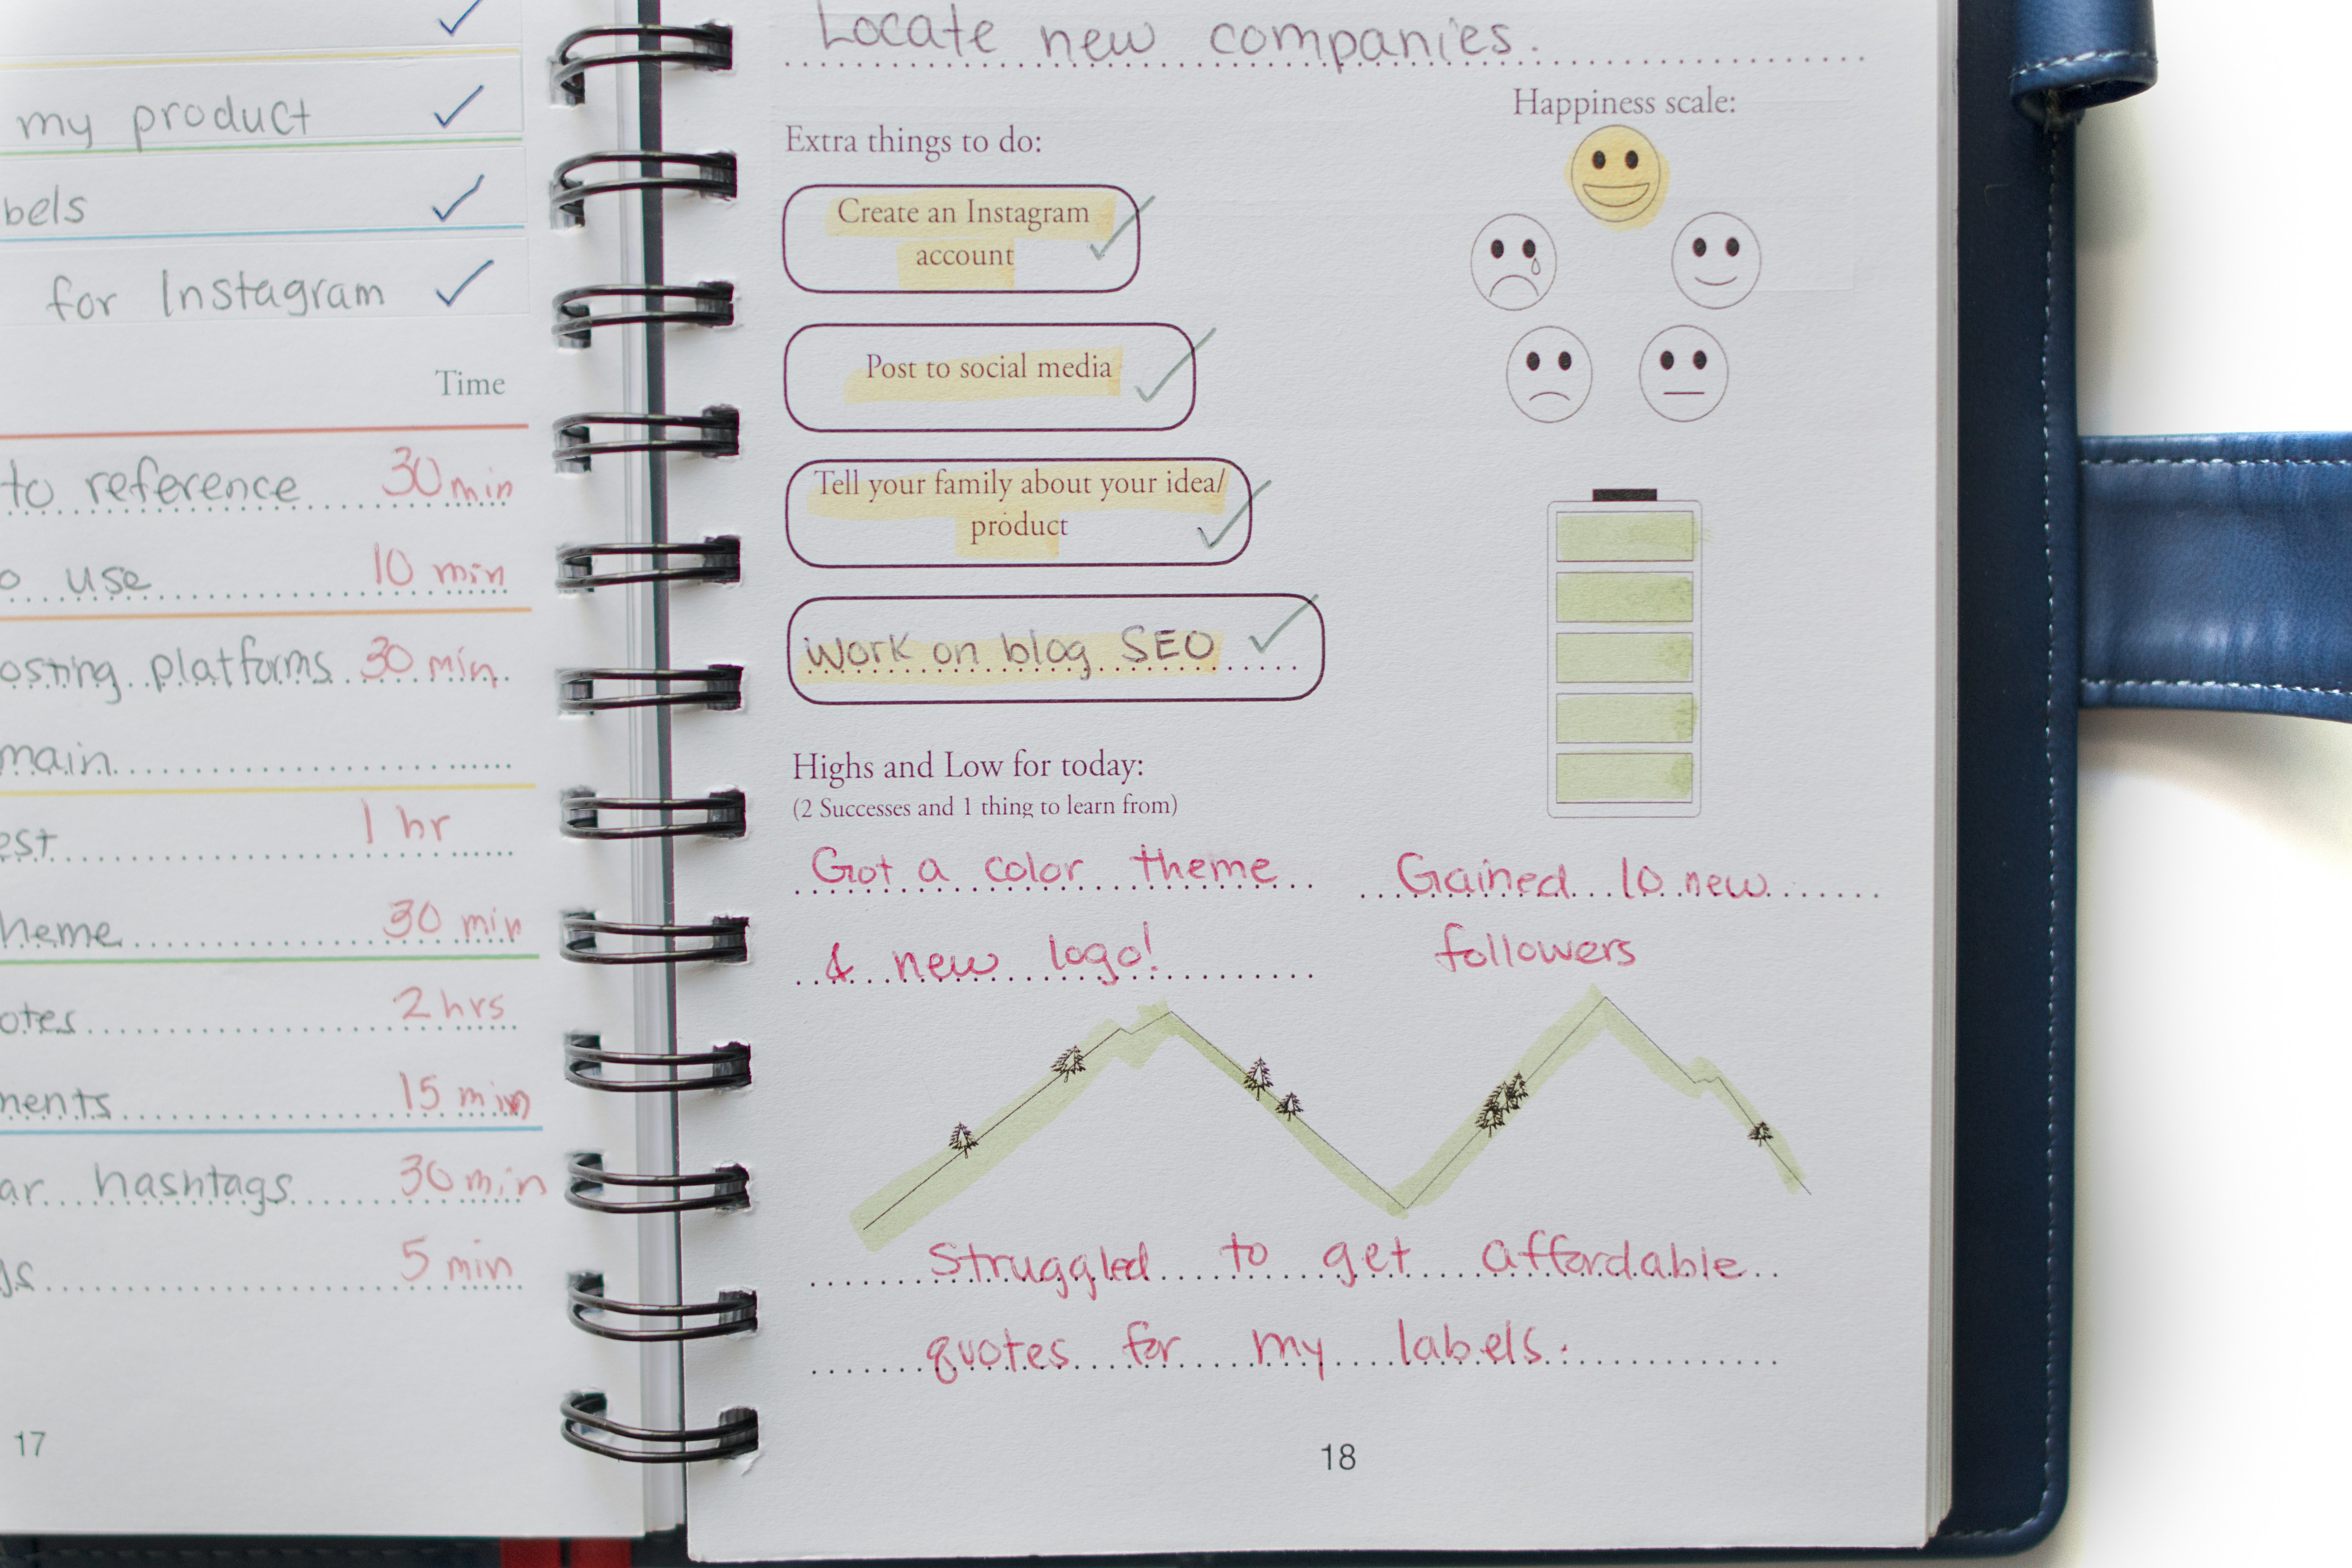 my product
for Instagram
Time
to reference 30 min
use 10 min
platforms 30 min.
1 hr
30 min
2 hrs
15 min
hashtags 30 min
5 min
17
Locate new companies.
Happiness scale:
Extra things to do:
Create an Instagram
account
Post to social media
Tell your family about your idea/
product
Work on blog SEO
Highs and Low for today:
(2 Successes and 1 thing to learn from)
Got a color theme
& new logo!
Gained 10 new
followers
Struggled to get affordable
quotes for my labels.
18